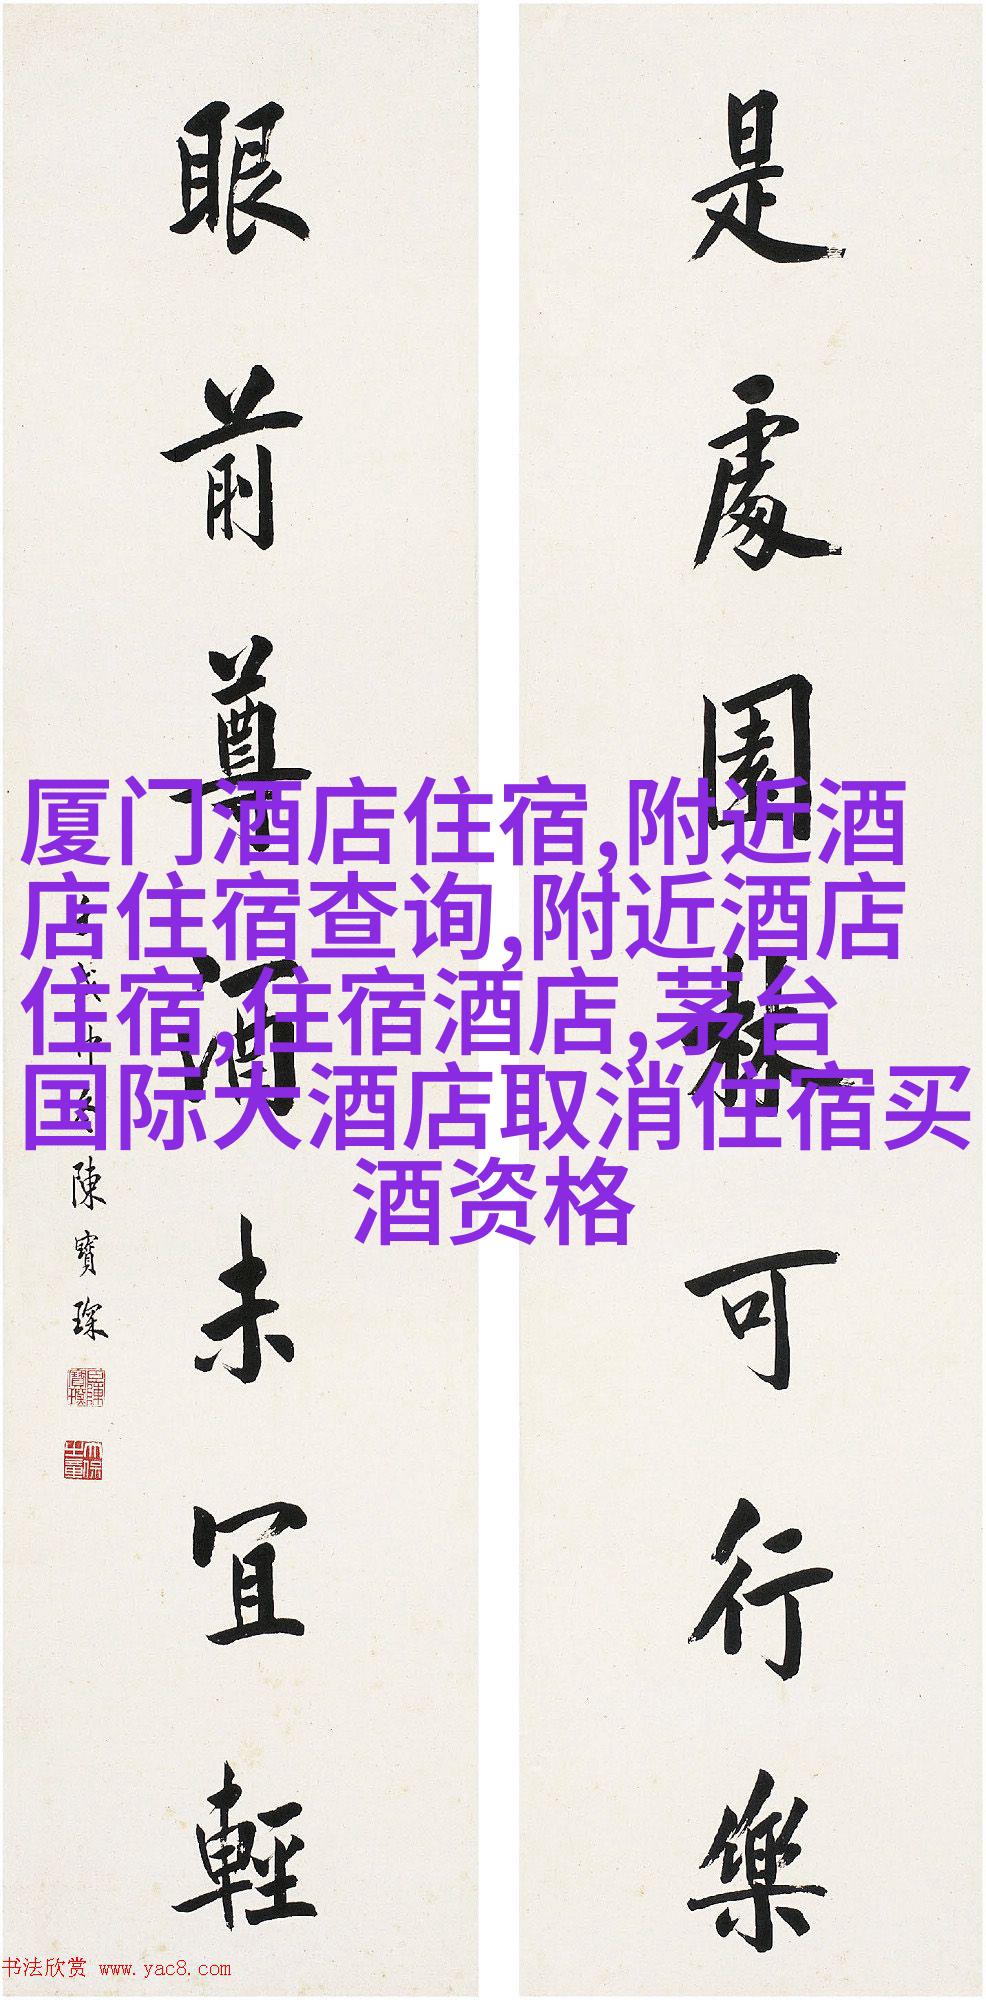 是處園林可行樂
眼前尊酒未宜輕
陳寶琛
厦门酒店住宿,附近酒
店住宿查询,附近酒店
住宿,住宿酒店,茅台
国际大酒店取消住宿买
酒资格
书法欣赏 www.yac8.com